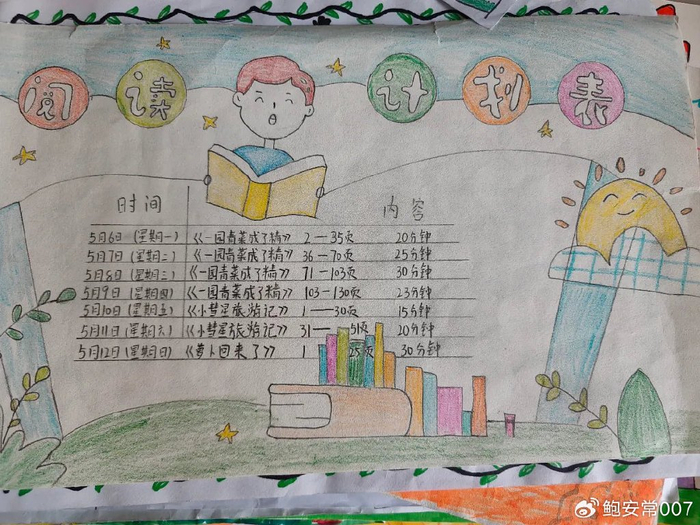 阅读计划表
时间 内容
5月6日(星期一) 《一园青菜成了精》 2—35页 20分钟
5月7日(星期二) 《一园青菜成了精》 36—70页 25分钟
5月8日(星期三) 《一园青菜成了精》 71—103页 30分钟
5月9日(星期四) 《一园青菜成了精》 103—130页 23分钟
5月10日(星期五) 《小彗星旅游记》 1—30页 15分钟
5月11日(星期六) 《小彗星旅游记》 31—51页 20分钟
5月12日(星期日) 《萝卜回来了》 1 25页 30分钟
鲍安常007